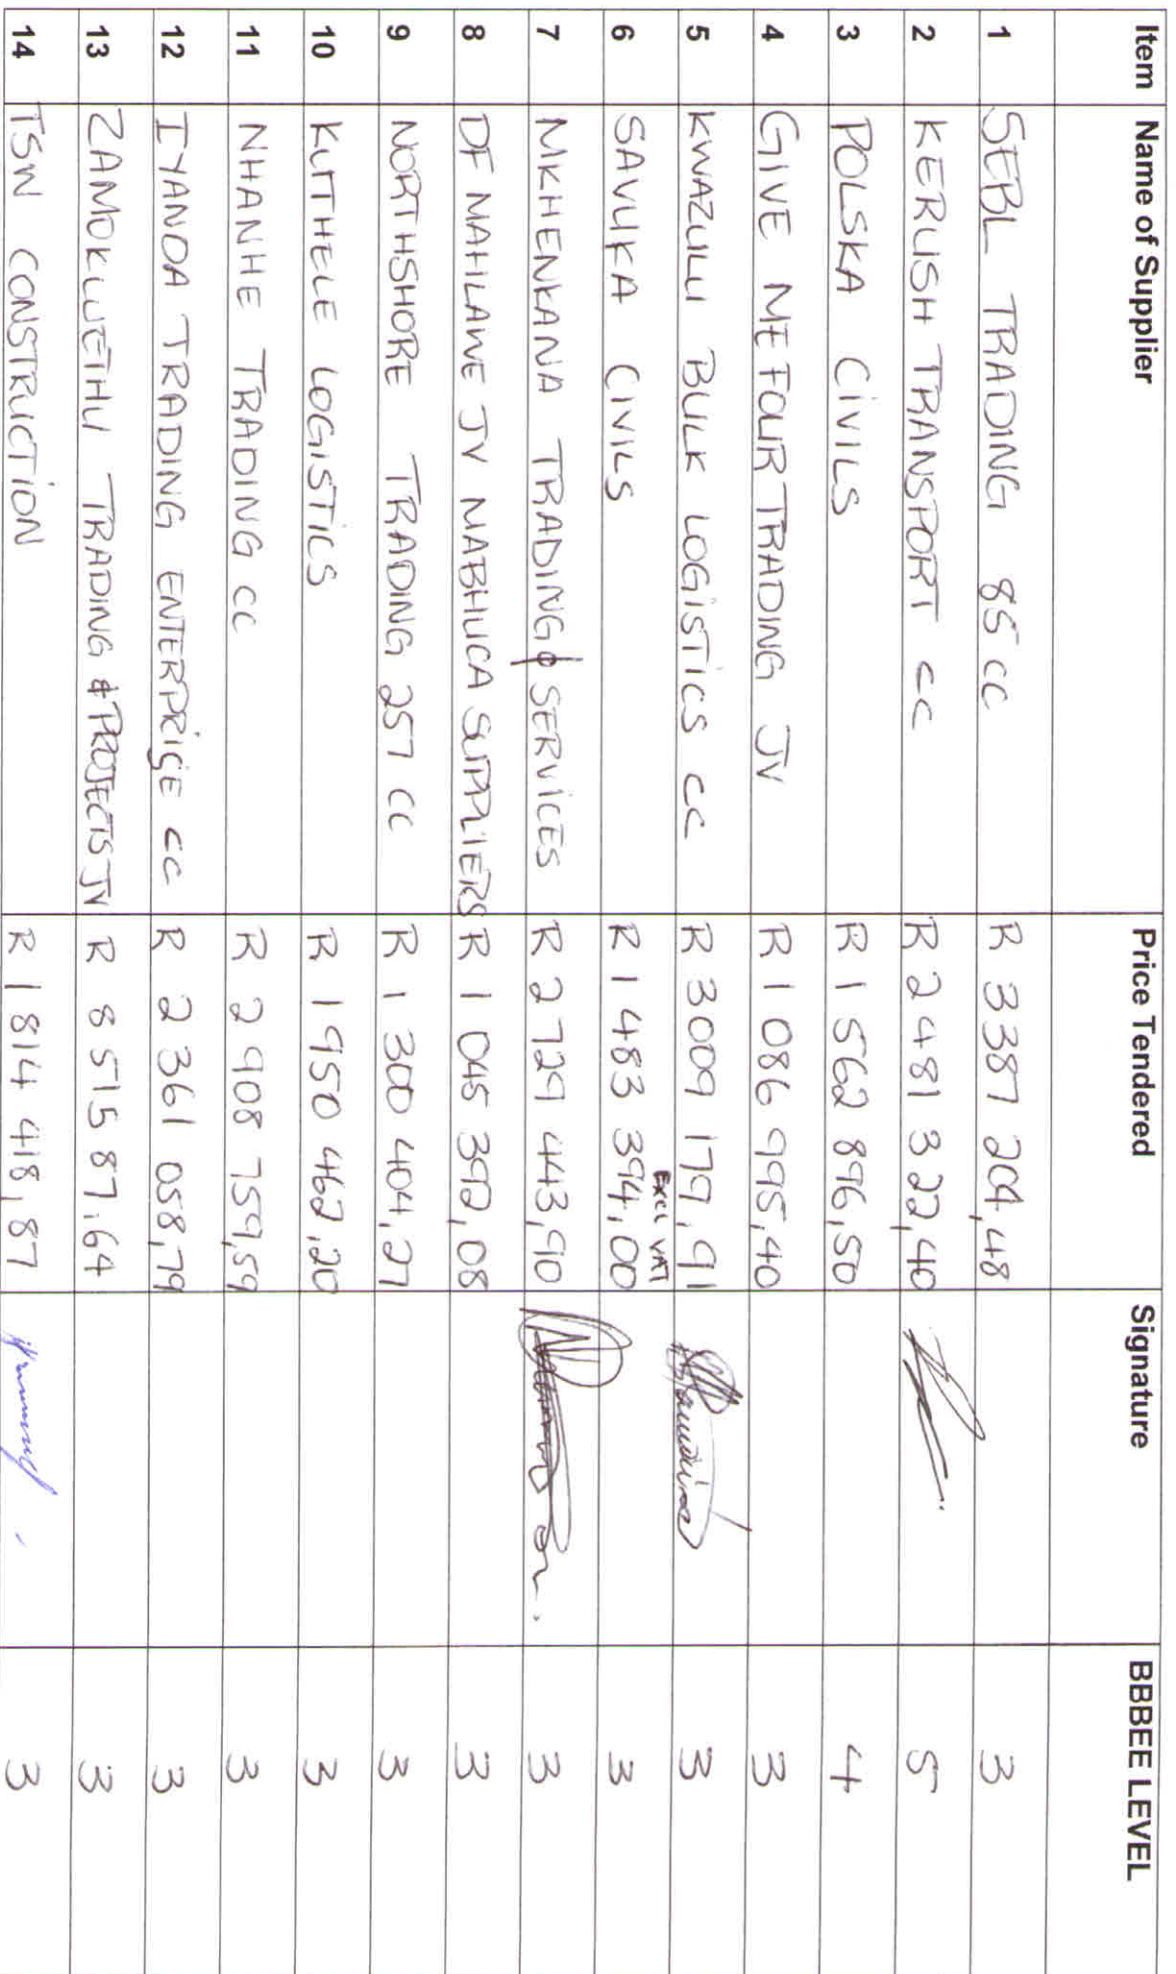 Item Name of Supplier Price Tendered Signature BBBEE LEVEL
1 SEBL TRADING 85 CC R 3387 204,48 3
2 KERUSH TRANSPORT CC R 2 481 322,40 5
3 POLSKA CIVILS R 1 562 896,50 4
4 GIVE ME FOUR TRADING JV R 1 086 995,40 3
5 KWAZULU BULK LOGISTICS CC R 3009 179,91 3
6 SAVUKA CIVILS R 1 483 394,00 EXCL VAT 3
7 MKHENKANA TRADING & SERVICES R 2 729 443,90 3
8 DF MAHLAWE JV MABHUCA SUPPLIERS R 1 045 392,08 3
9 NORTHSHORE TRADING 257 CC R 1 300 404,27 3
10 KUTHELE LOGISTICS R 1950 462,20 3
11 NHANHE TRADING CC R 2 908 759,59 3
12 IYANDA TRADING ENTERPRISE CC R 2 361 058,79 3
13 ZAMOKWETHU TRADING & PROJECTS JV R 8 515 87.64 3
14 TSW CONSTRUCTION R 1 814 418,87 3